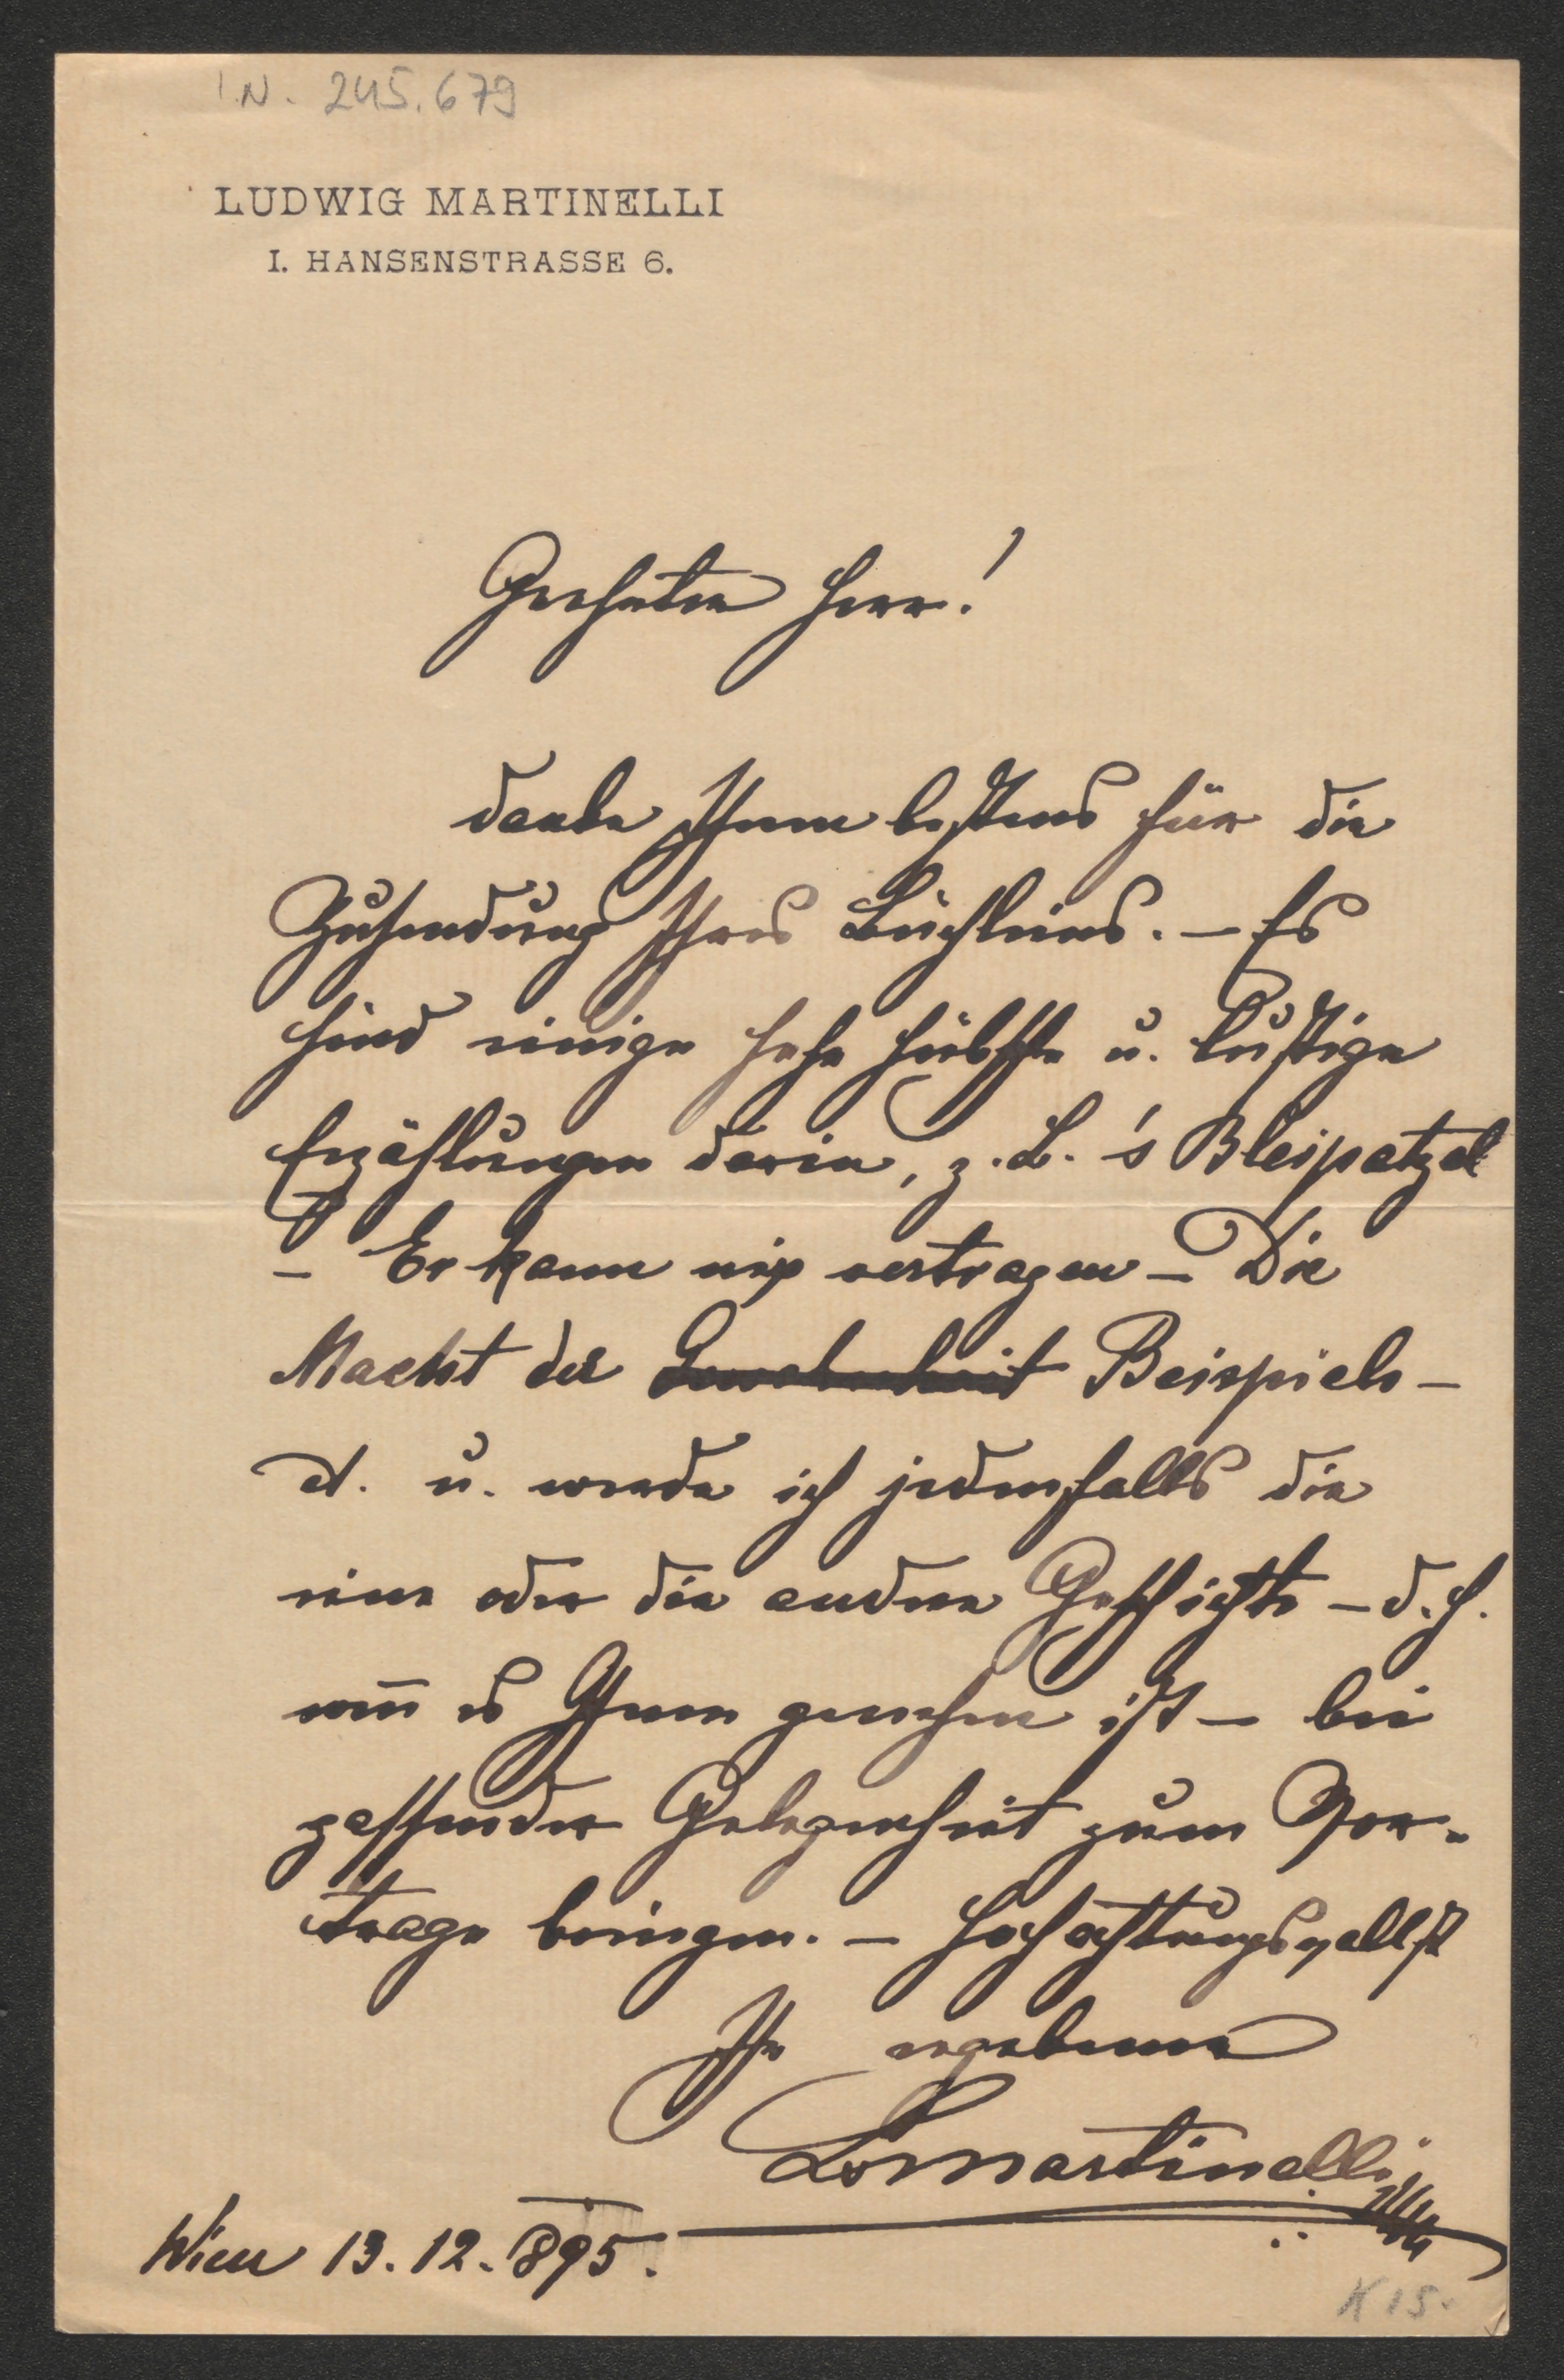 I.N. 245.679
LUDWIG MARTINELLI
I. HANSENSTRASSE 6.
Geehrter Herr!
danke Ihnen bestens für die
Zusendung Ihres Büchleins. – Es
sind einige sehr hübsche u. lustige
Erzählungen darin, z. B. 's Bleipatzel
– Er kann nix vertragen – Die
Macht des Gewohnheit Beispiels –
etc. u. werde ich jedenfalls die
eine oder die andere Geschichte – d. h.
weñ es Ihnen genehm ist – bei
passender Gelegenheit zum Vor-
trage bringen. – Hochachtungsvollst
Ihr ergebener
LMartinelli
Wien 13.12.895.
K 15.